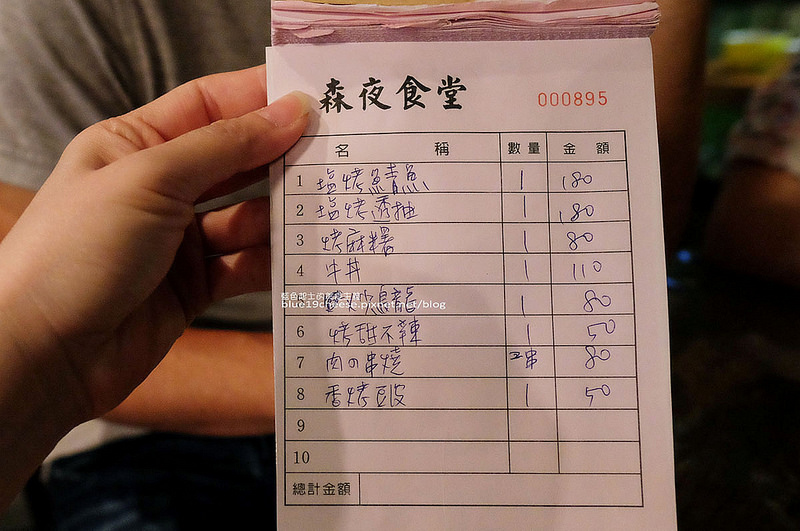 森夜食堂
000895
名 稱 數量 金 額
1 塩烤鯖魚 1 180
2 塩烤透抽 1 180
3 烤麻糬 1 80
4 牛丼 1 110
炒烏龍 1 80
blue19cheese.pixnet.net/blog
6 烤甜不辣 1 50
7 肉の串燒 2串 80
8 香烤豆皮 1 50
9
10
總計金額